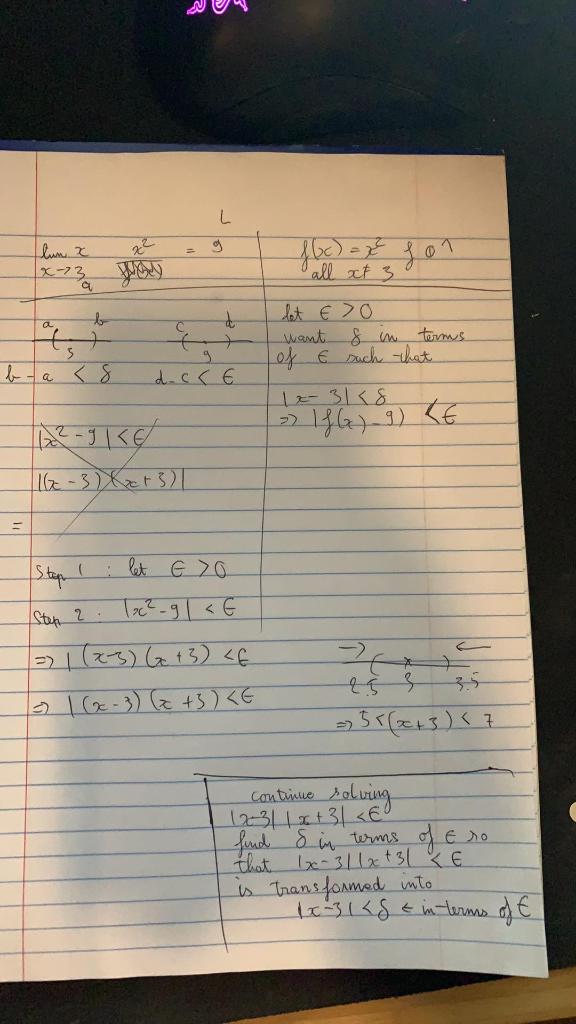 L
lim x x² = 9
x→3
a
f(x) = x²
all x≠ 3
a b c d
3 9
b-a < δ d-c < ϵ
let ϵ > 0
want δ in terms
of ϵ such that
|x - 3| < δ
=> |f(x) - 9) < ϵ
|x² - 9| < ϵ
|(x - 3)(x + 3)|
=
Step 1 : let ϵ > 0
Step 2 : |x² - 9| < ϵ
=> | (x-3) (x + 3) < ϵ
=> | (x - 3) (x + 3) < ϵ
→ ←
2.5 3 3.5
=> 5 < (x + 3) < 7
continue solving
|x-3| |x + 3| < ϵ
find δ in terms of ϵ so
that |x - 3| |x + 3| < ϵ
is transformed into
|x - 3| < δ ← in-terms of ϵ